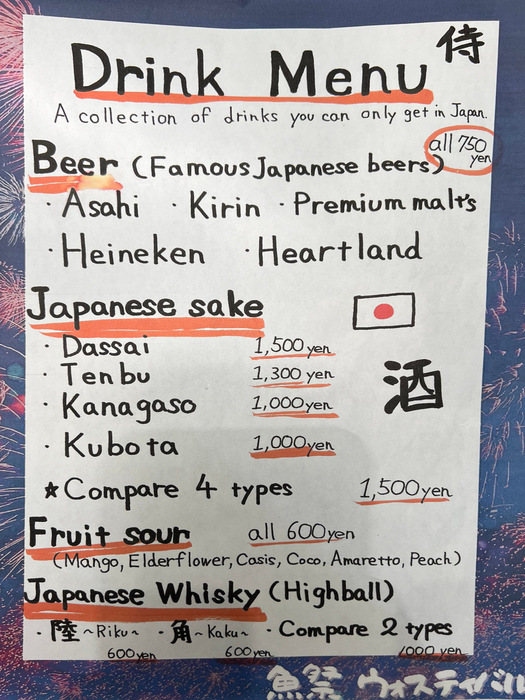 侍
Drink Menu
A collection of drinks you can only get in Japan.
all 750 yen
Beer (Famous Japanese beers)
・Asahi ・Kirin ・Premium malt's
・Heineken ・Heartland
Japanese sake
・Dassai 1,500 yen
・Tenbu 1,300 yen
・Kanagaso 1,000 yen
・Kubota 1,000 yen
酒
★Compare 4 types 1,500 yen
Fruit sour all 600 yen
(Mango, Elderflower, Casis, Coco, Amaretto, Peach)
Japanese Whisky (Highball)
・陸~Riku~ ・角~Kaku~ ・Compare 2 types
600 yen 600 yen 1000 yen
魚祭 ウオスティバル